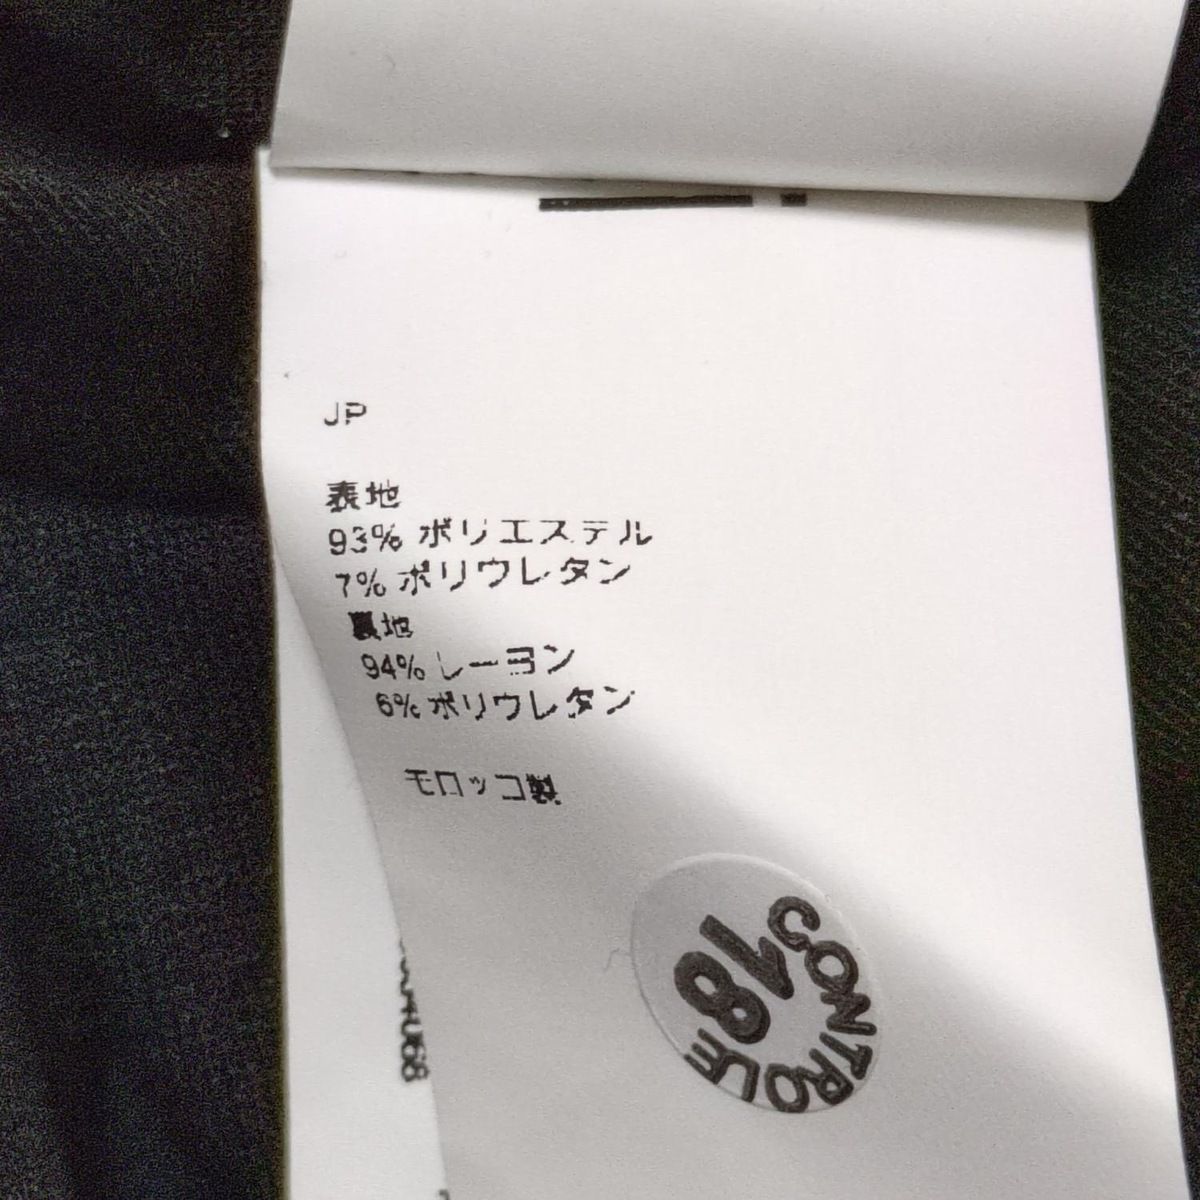 JP
表地
93% ポリエステル
7% ポリウレタン
裏地
94% レーヨン
6% ポリウレタン
モロッコ製
CONTROLE
18